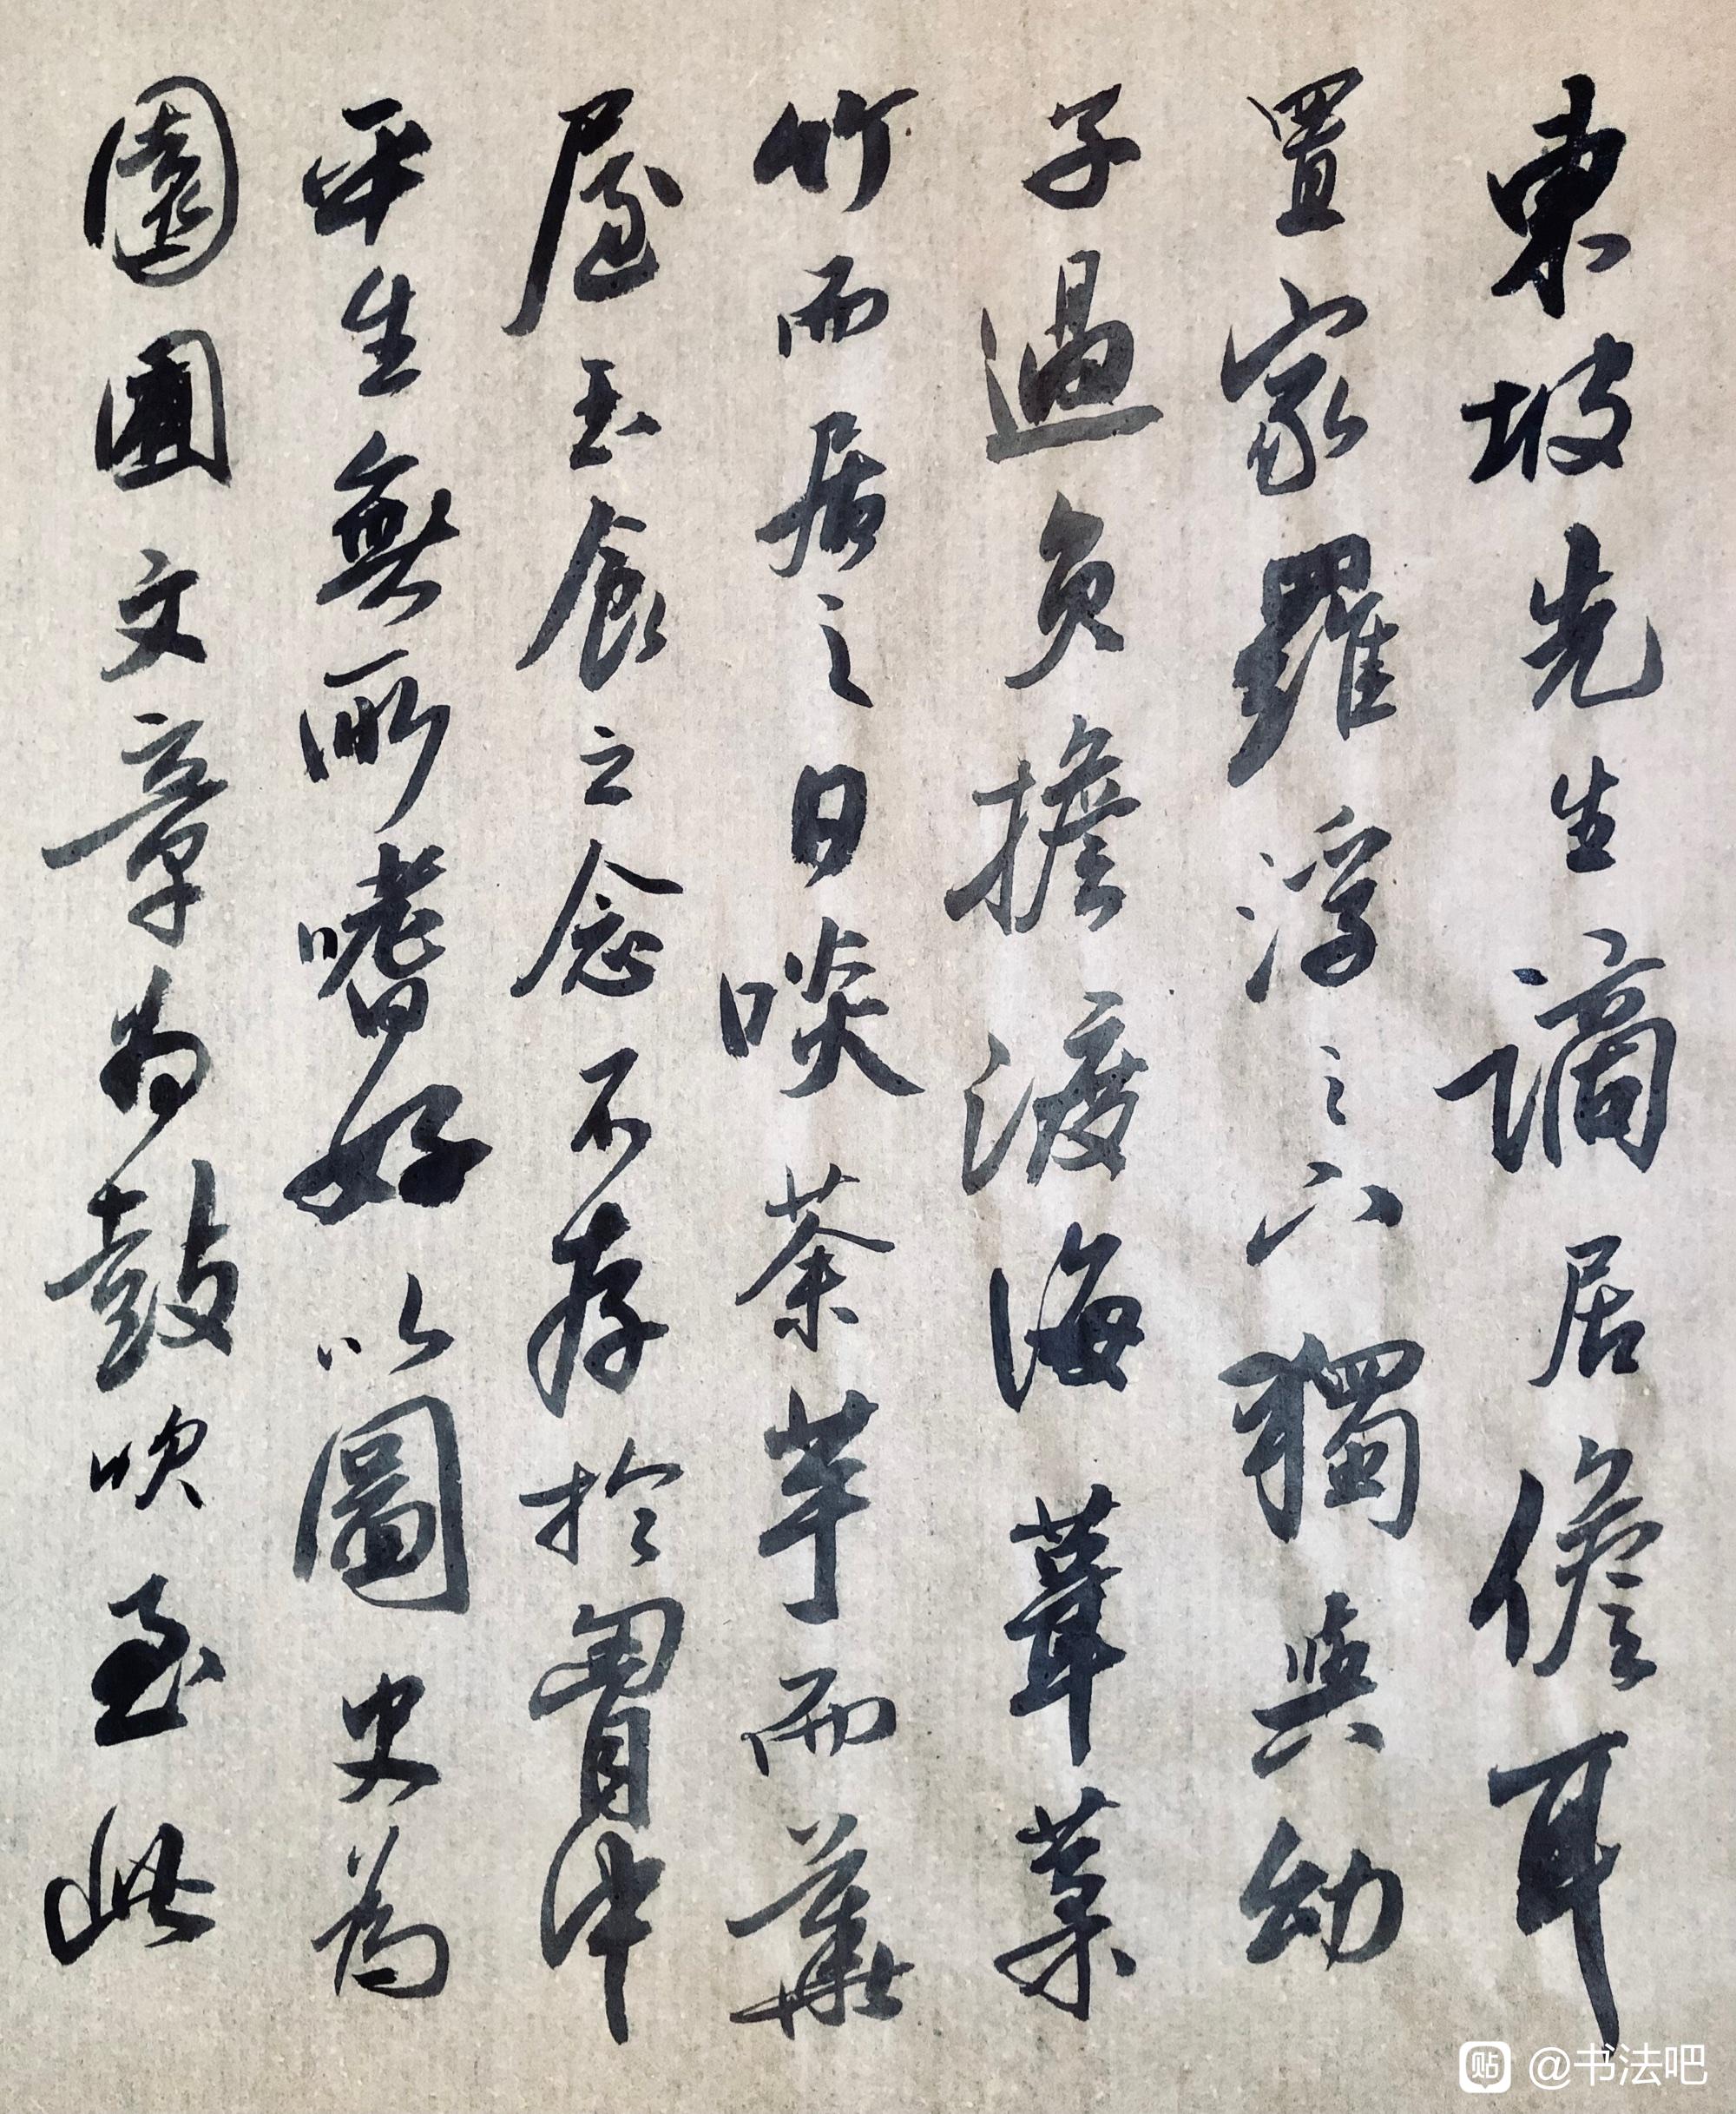 東坡先生謫居儋耳
置家羅浮之下獨與幼
子過負擔渡海葺茅
竹而居之日啖荼芋而華
屋玉食之念不存於胷中
平生無所嗜好以圖史為
園囿文章為鼓吹至此
@书法吧